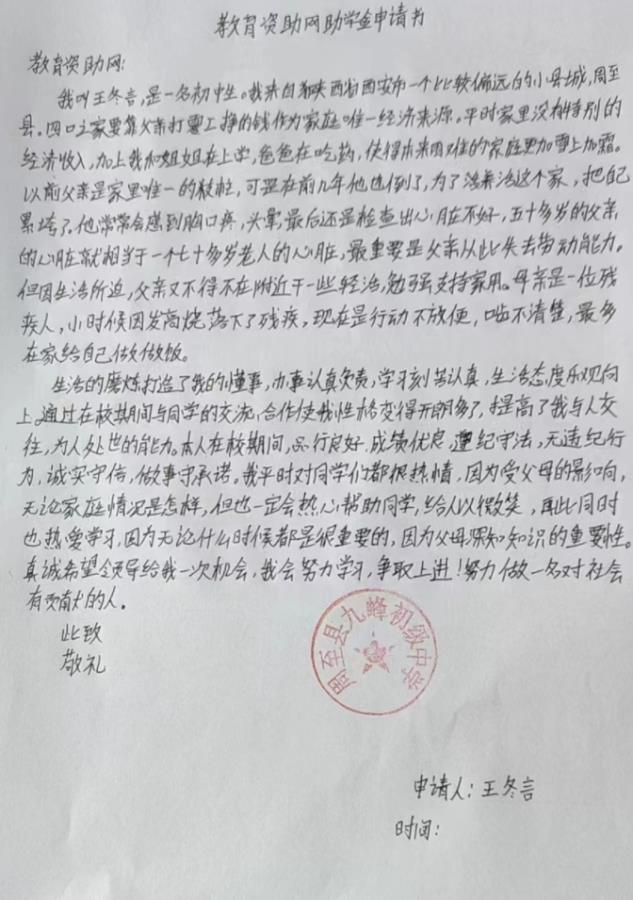 教育资助网助学金申请书
教育资助网:
我叫王冬言,是一名初中生。我来自陕西省西安市一个比较偏远的小县城,周至
县。四口之家要靠父亲打零工挣的钱作为家庭唯一经济来源。平时家里没有特别的
经济收入,加上我和姐姐在上学,爸爸在吃药,使得本来困难的家庭更加雪上加霜。
以前父亲是家里唯一的棱柱,可是在前几年他也倒了,为了养活这个家,把自己
累垮了,他常常会感到胸口疼,头晕,最后还是检查出心脏不好,五十多岁的父亲
的心脏就相当于一个七十多岁老人的心脏,最重要是父亲从此失去劳动能力。
但因生活所迫,父亲又不得不在附近干一些轻活,勉强支持家用。母亲是一位残
疾人,小时候因发高烧落下了残疾,现在是行动不放便,啮不清楚,最多
在家给自己做做饭。
生活的磨炼打造了我的懂事,办事认真负责,学习刻苦认真,生活态度乐观向
上,通过在校期间与同学的交流,合作使我性格变得开朗多了,提高了我与人交
往,为人处世的能力。本人在校期间,品行良好,成绩优良,遵纪守法,无违纪行
为,诚实守信,做事守承诺。我平时对同学们都很热情,因为受父母的影响,
无论家庭情况是怎样,但也一定会热心帮助同学,给人以微笑,再此同时
也热爱学习,因为无论什么时候都是很重要的,因为父母深知知识的重要性。
真诚希望领导给我一次机会,我会努力学习,争取上进!努力做一名对社会
有贡献的人。
此致
敬礼
周至县九峰初级中学
申请人:王冬言
时间: